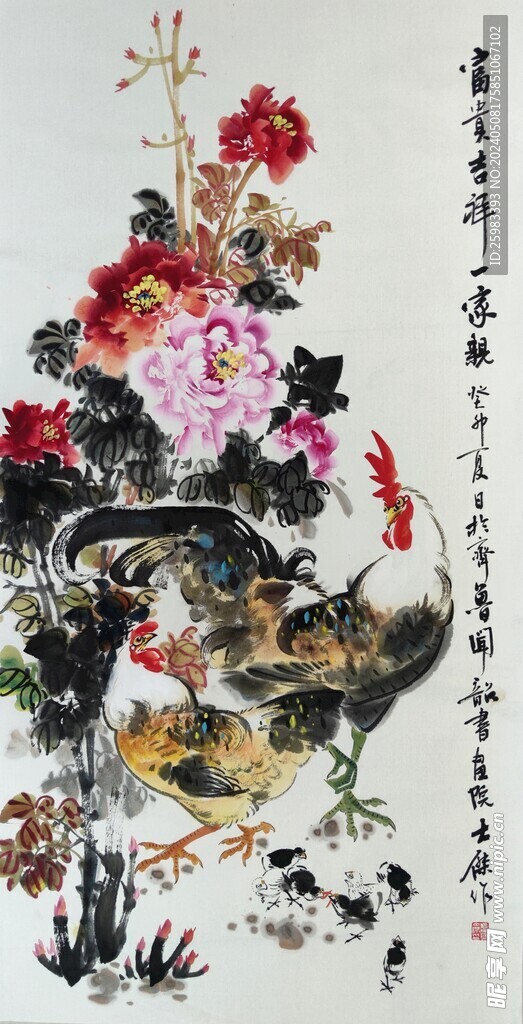 富貴吉祥一家親
癸卯夏日於齊魯聞韶書畫院士傑作
ID:25983393 NO:20240508175851067102
昵享网 www.nipic.cn